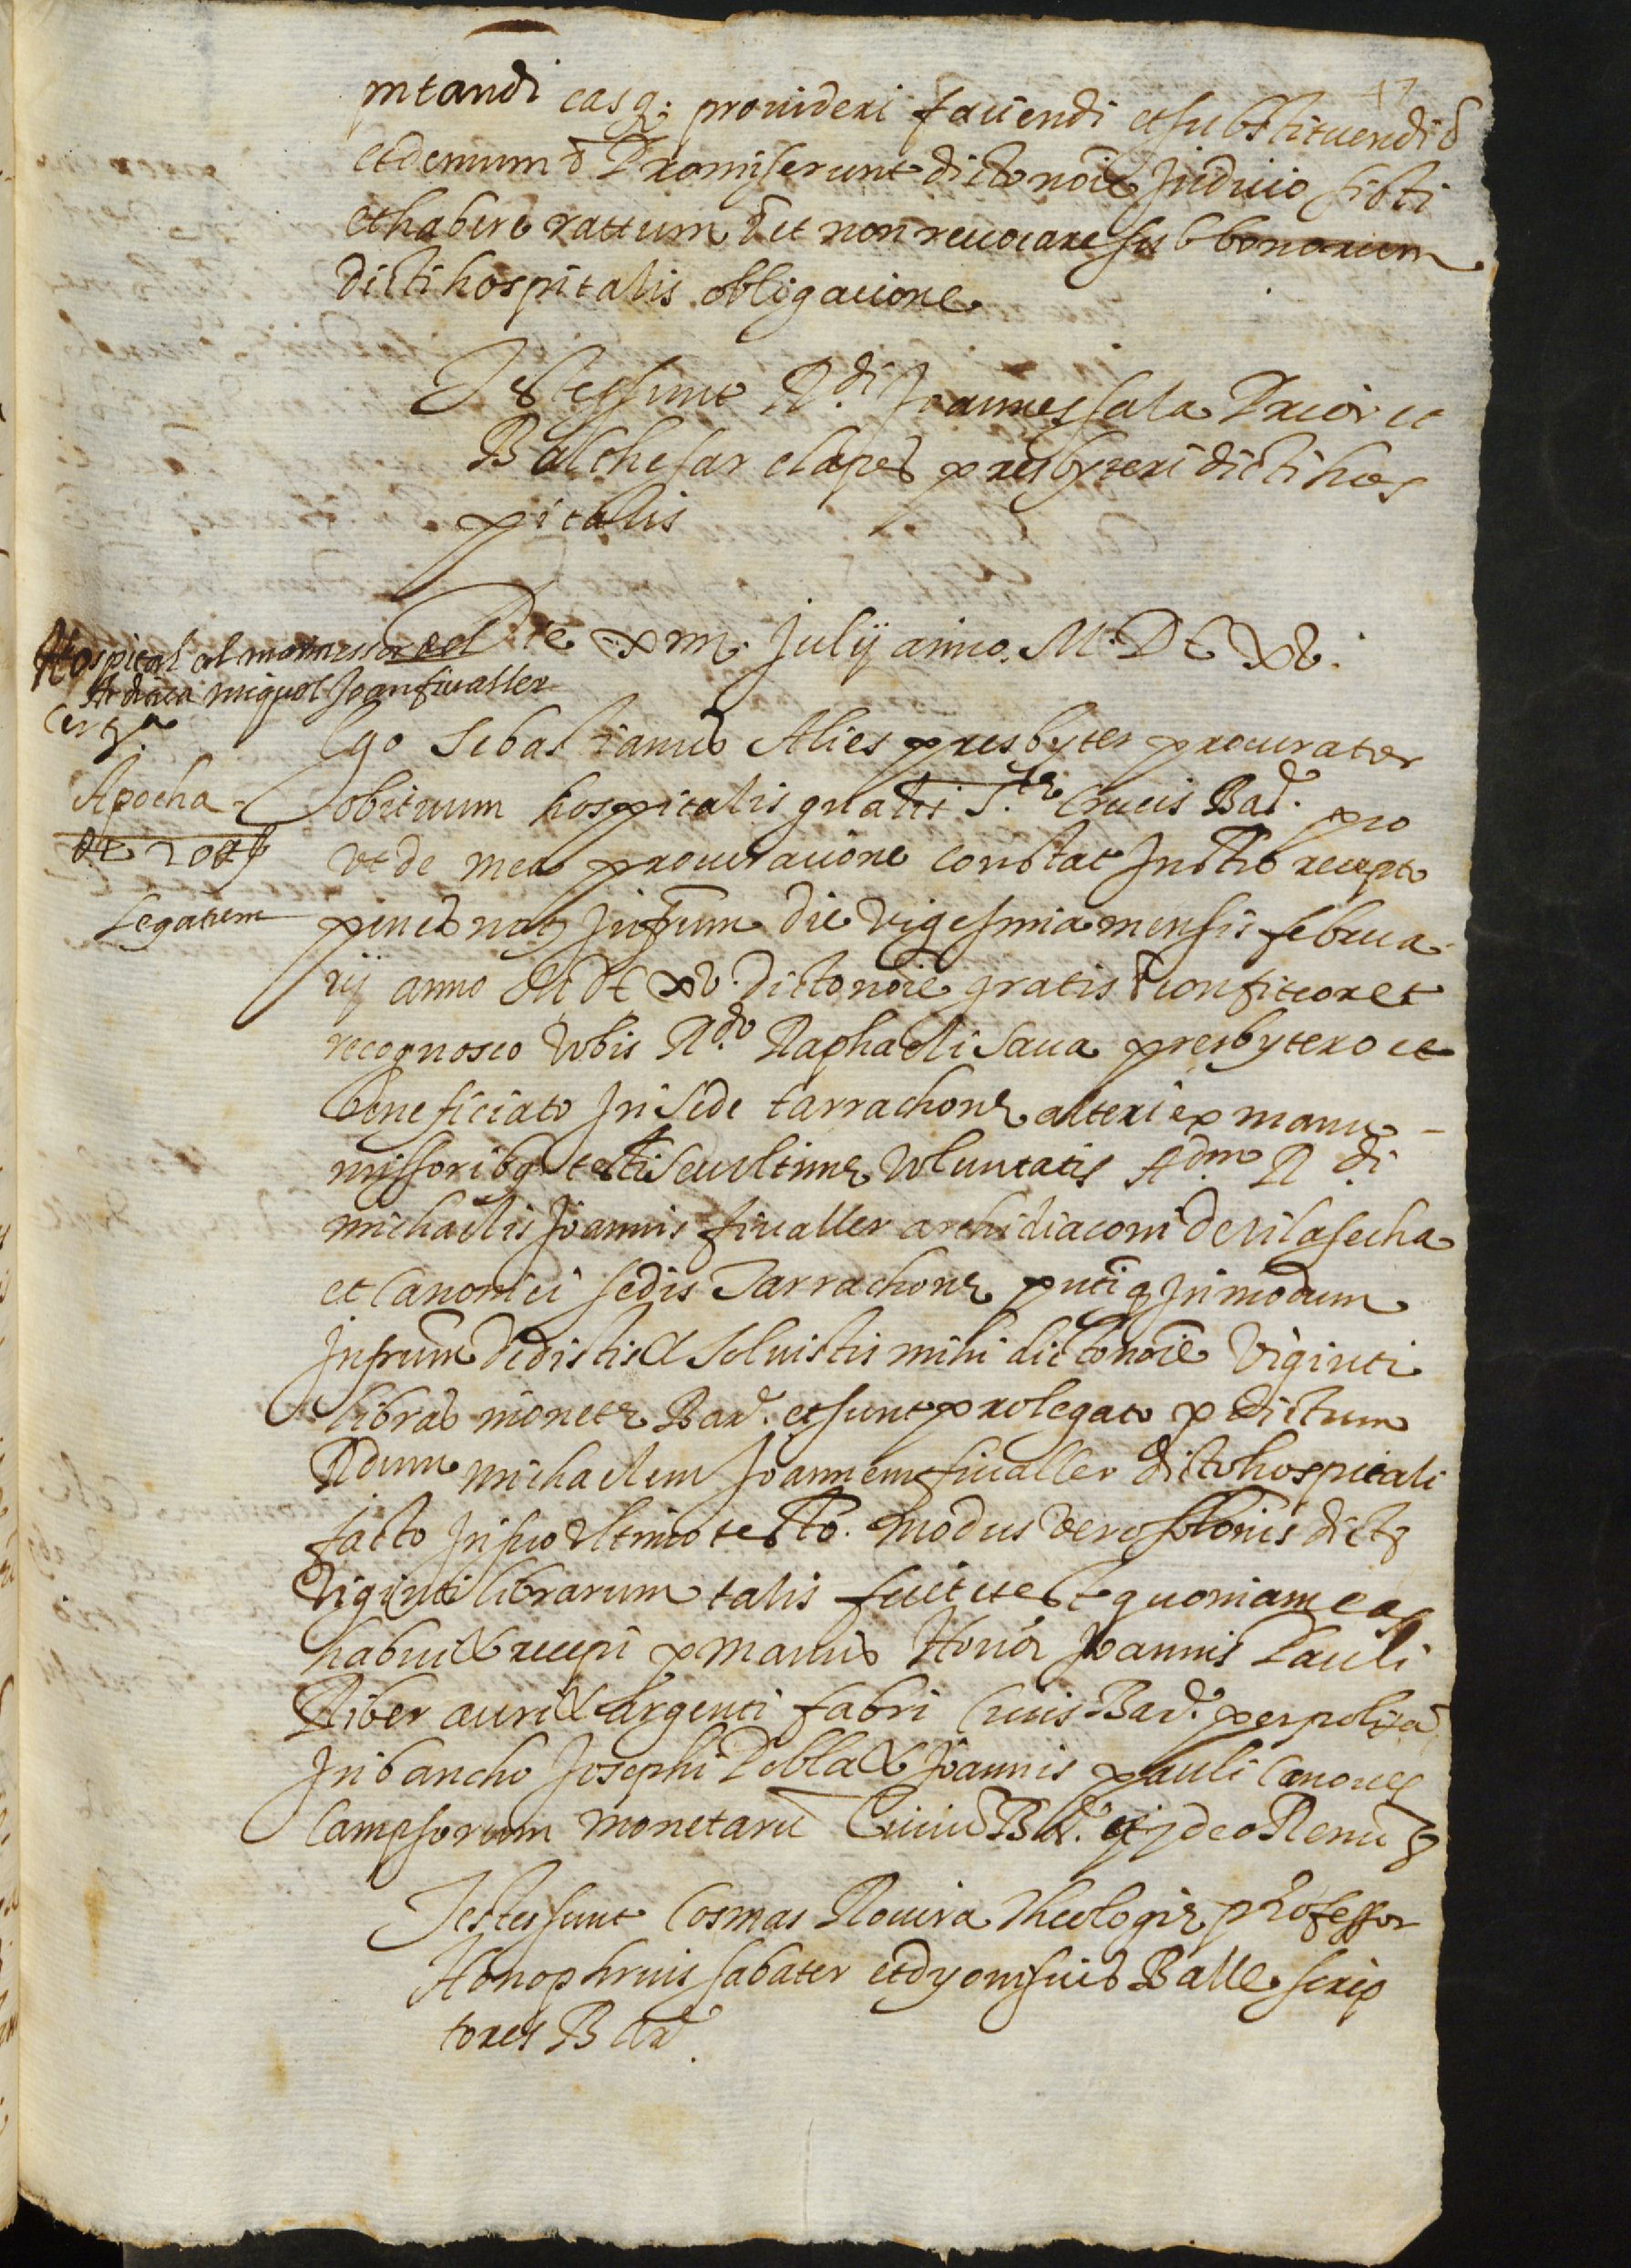 17
pntandi easq; provideri faciendi et substituendi &
et demum & Promiserunt dicto noīe Judicio sisti
et habere rattum & et non revocare sub bonorum
dicti hospitalis obligacione
Testes sunt R.di Joannes Sala Prior et
Balthesar clapes presbyteri dicti hos
pitalis
Die xiiii. Julij anno. M. DC XV.
Hospital al marmessor del
Ardiaca miquel Joan fivaller
Apocha
de 20 ₶
Legatum
Ego Sebastianus Alies presbyter procurator
obituum hospitalis gnalis S.te Crucis Bar͂. pro
ut de mea procuracione constat Instr̄o recepto
penes not Infrūm die vigesima mensis februa
rij anno M DC XV. dicto noīe gratis & confiteor et
recognosco vobis R.do Raphaeli Sava presbytero et
beneficiato In Sede tarrachone alteri ex manu
missoribq testi seu ultime voluntatis Adm. R.di
michaelis Joannis fivaller archidiaconi de vilasecha
et Canonici sedis Tarrachone pnti q In modum
Infrūm dedistis & solvistis mihi dicto noīe viginti
libras monete Bar͂. et sunt pro legato p dictum
Rdum michaelem Joannem fivaller dicto hospitali
facto In suo ultimo testo. modus vero soloīnis dictȝ
viginti librarum talis fuit et est quoniam eas
habui & recepi p manus Honor Joannis Pauli
Riber auri & argenti fabri Civis Bar͂. per polizā
In bancho Josephi Dobla & Joannis pauli Canoves
Campsorum monetarū Civiū Bar͂. et ideo Renū &
Testes sunt Cosmas Rovira Theologie professor
Honophrius Sabater et dyonisius Balle scrip
tores Bar͂.